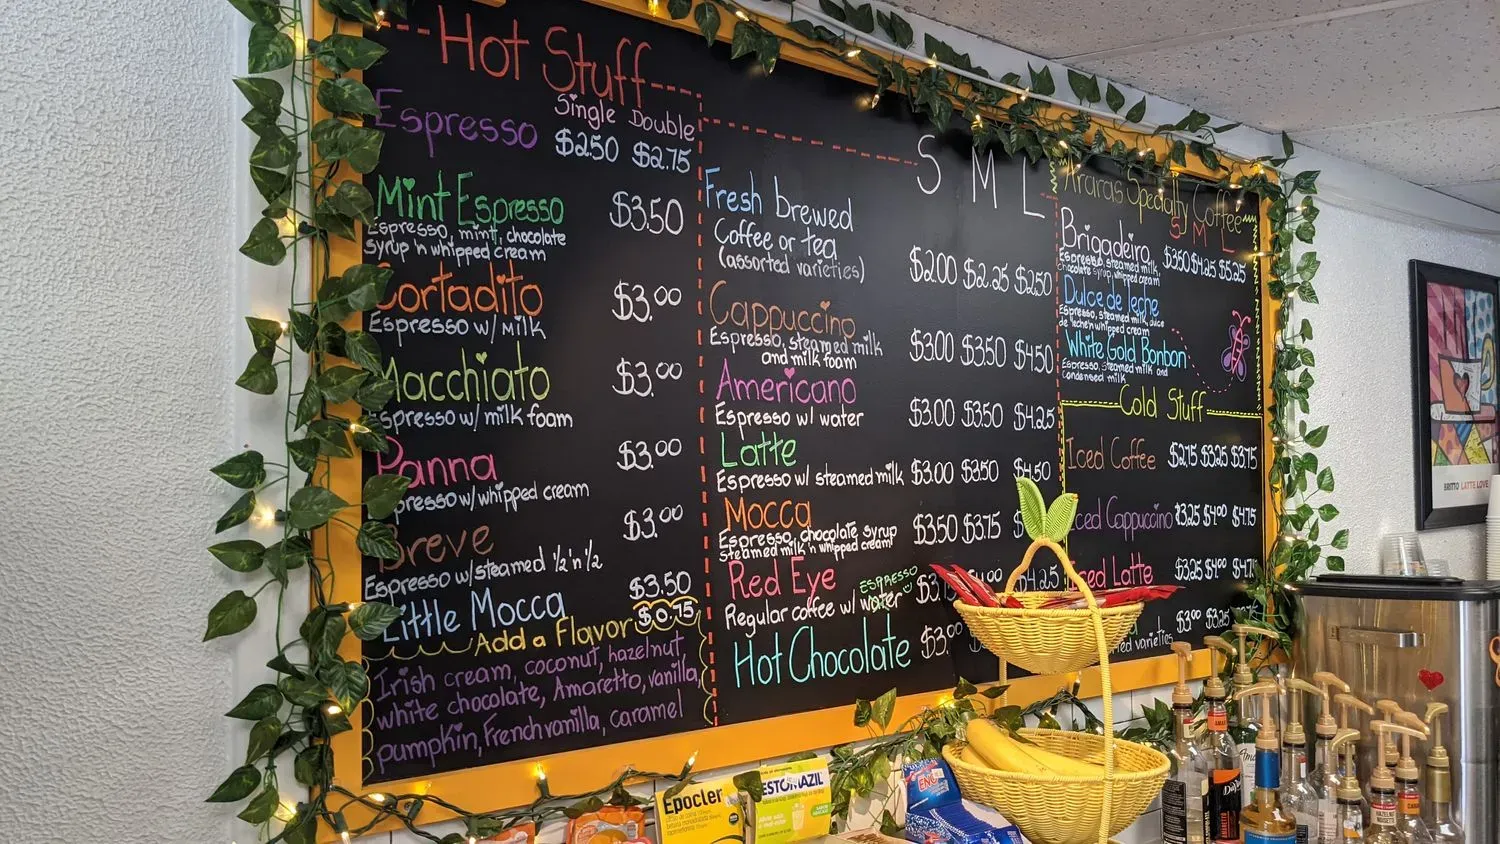 Hot Stuff
Single Double
Espresso $2.50 $2.75
Mint Espresso $3.50
Espresso, mint, chocolate
syrup 'n whipped cream
Cortadito $3.00
Espresso w/ milk
Macchiato $3.00
Espresso w/ milk foam
Panna $3.00
Espresso w/ whipped cream
Breve $3.00
Espresso w/ steamed ½ 'n ½
Little Mocca $3.50
Add a Flavor $0.75
Irish cream, coconut, hazelnut,
white chocolate, Amaretto, vanilla,
pumpkin, French vanilla, caramel
S M L
Fresh brewed
Coffee or tea
(assorted varieties) $2.00 $2.25 $2.50
Cappuccino
Espresso, steamed milk $3.00 $3.50 $4.50
and milk foam
Americano
Espresso w/ water $3.00 $3.50 $4.25
Latte
Espresso w/ steamed milk $3.00 $3.50 $4.50
Mocca
Espresso, chocolate syrup $3.50 $3.75
steamed milk 'n whipped cream
Red Eye
ESPRESSO
Regular coffee w/ water $4.25
Hot Chocolate $3.00
Araras Specialty Coffee
S M L
Brigadeiro $3.50 $4.25 $5.25
Espresso, steamed milk,
chocolate syrup, whipped cream
Dulce de leche
Espresso, steamed milk, dulce
de leche 'n whipped cream
White Gold Bonbon
Espresso, steamed milk and
condensed milk
Cold Stuff
Iced Coffee $2.75 $3.25 $3.75
Iced Cappuccino $3.25 $4.00 $4.75
Iced Latte $3.25 $4.00
$3.00 $3.25
varieties
BRITTO LATTE LOVE
Epocler
ESTOMAZIL
ENO